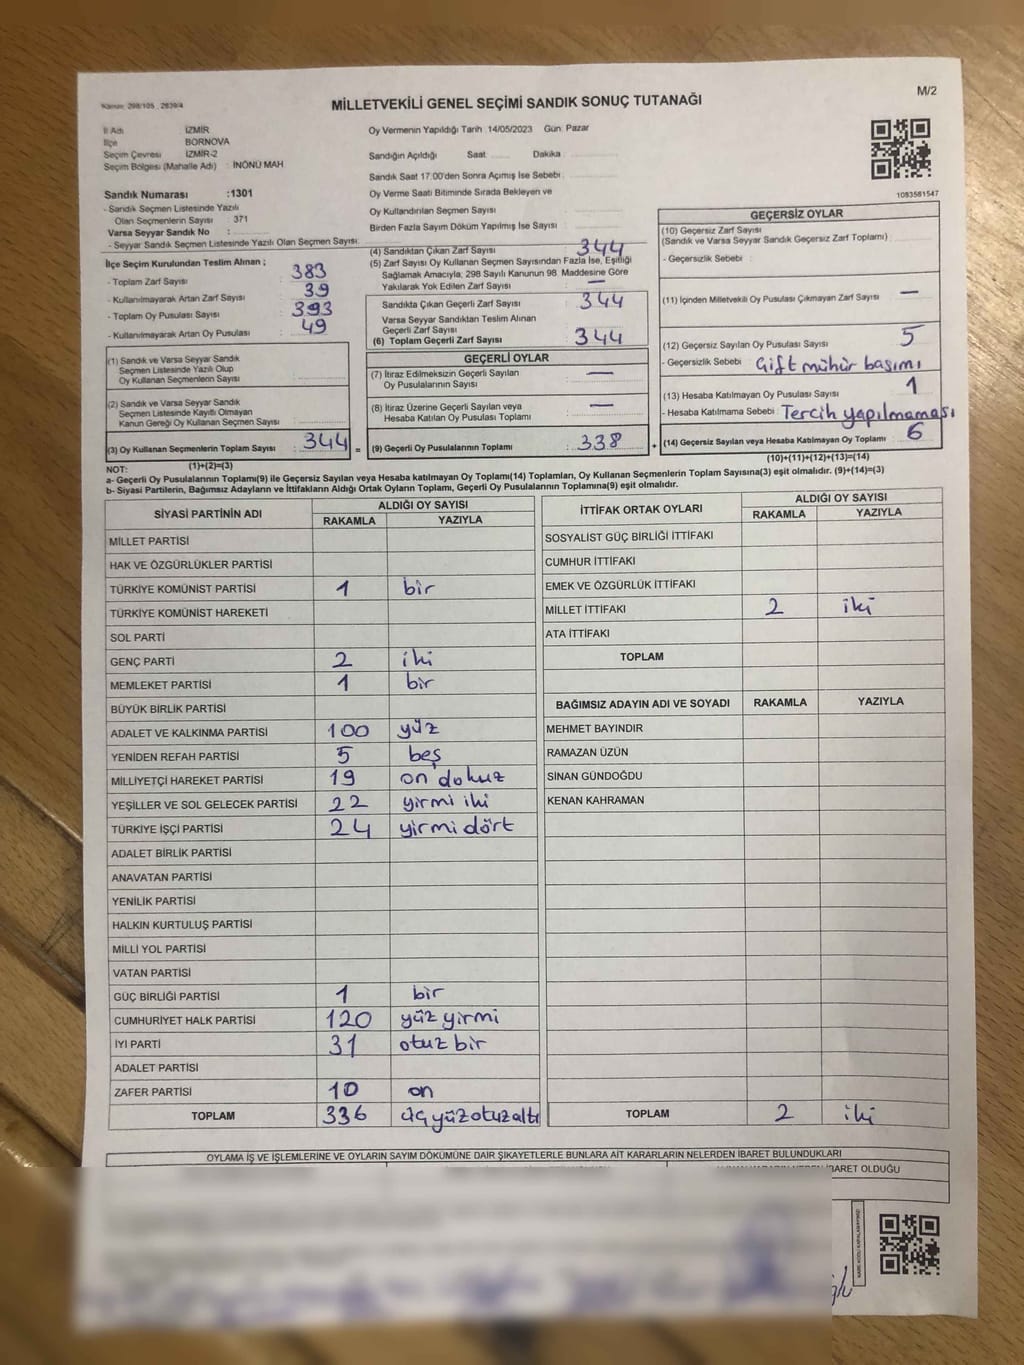 Kanun: 298/105 , 2839/4
MİLLETVEKİLİ GENEL SEÇİMİ SANDIK SONUÇ TUTANAĞI
M/2
İl Adı İZMİR
İlçe BORNOVA
Seçim Çevresi İZMİR-2
Seçim Bölgesi (Mahalle Adı) : İNÖNÜ MAH
Sandık Numarası :1301
- Sandık Seçmen Listesinde Yazılı
Olan Seçmenlerin Sayısı : 371
Varsa Seyyar Sandık No :
- Seyyar Sandık Seçmen Listesinde Yazılı Olan Seçmen Sayısı:
Oy Vermenin Yapıldığı Tarih :14/05/2023 Gün: Pazar
Sandığın Açıldığı Saat Dakika
Sandık Saat 17:00'den Sonra Açılmış İse Sebebi :
Oy Verme Saati Bitiminde Sırada Bekleyen ve
Oy Kullandırılan Seçmen Sayısı :
Birden Fazla Sayım Döküm Yapılmış İse Sayısı :
1083581547
İlçe Seçim Kurulundan Teslim Alınan ;
- Toplam Zarf Sayısı : 383
- Kullanılmayarak Artan Zarf Sayısı : 39
- Toplam Oy Pusulası Sayısı : 393
- Kullanılmayarak Artan Oy Pusulası : 49
(1) Sandık ve Varsa Seyyar Sandık
Seçmen Listesinde Yazılı Olup
Oy Kullanan Seçmenlerin Sayısı :
(2) Sandık ve Varsa Seyyar Sandık
Seçmen Listesinde Kayıtlı Olmayan
Kanun Gereği Oy Kullanan Seçmen Sayısı :
(3) Oy Kullanan Seçmenlerin Toplam Sayısı : 344
(1)+(2)=(3)
(4) Sandıktan Çıkan Zarf Sayısı : 344
(5) Zarf Sayısı Oy Kullanan Seçmen Sayısından Fazla İse, Eşitliği
Sağlamak Amacıyla; 298 Sayılı Kanunun 98. Maddesine Göre
Yakılarak Yok Edilen Zarf Sayısı : —
Sandıkta Çıkan Geçerli Zarf Sayısı : 344
Varsa Seyyar Sandıktan Teslim Alınan
Geçerli Zarf Sayısı :
(6) Toplam Geçerli Zarf Sayısı : 344
GEÇERLİ OYLAR
(7) İtiraz Edilmeksizin Geçerli Sayılan
Oy Pusulalarının Sayısı : —
(8) İtiraz Üzerine Geçerli Sayılan veya
Hesaba Katılan Oy Pusulaları Toplamı : —
= (9) Geçerli Oy Pusulalarının Toplamı : 338 +
GEÇERSİZ OYLAR
(10) Geçersiz Zarf Sayısı
(Sandık ve Varsa Seyyar Sandık Geçersiz Zarf Toplamı) :
- Geçersizlik Sebebi :
(11) İçinden Milletvekili Oy Pusulası Çıkmayan Zarf Sayısı : —
(12) Geçersiz Sayılan Oy Pusulası Sayısı : 5
- Geçersizlik Sebebi : Çift mühür basımı
(13) Hesaba Katılmayan Oy Pusulası Sayısı : 1
- Hesaba Katılmama Sebebi : Tercih yapılmaması
(14) Geçersiz Sayılan veya Hesaba Katılmayan Oy Toplamı : 6
(10)+(11)+(12)+(13)=(14)
NOT:
a- Geçerli Oy Pusulalarının Toplamı(9) ile Geçersiz Sayılan veya Hesaba katılmayan Oy Toplamı(14) Toplamları, Oy Kullanan Seçmenlerin Toplam Sayısına(3) eşit olmalıdır. (9)+(14)=(3)
b- Siyasi Partilerin, Bağımsız Adayların ve İttifakların Aldığı Ortak Oyların Toplamı, Geçerli Oy Pusulalarının Toplamına(9) eşit olmalıdır.
SİYASİ PARTİNİN ADI ALDIĞI OY SAYISI
RAKAMLA YAZIYLA
MİLLET PARTİSİ
HAK VE ÖZGÜRLÜKLER PARTİSİ
TÜRKİYE KOMÜNİST PARTİSİ 1 bir
TÜRKİYE KOMÜNİST HAREKETİ
SOL PARTİ
GENÇ PARTİ 2 iki
MEMLEKET PARTİSİ 1 bir
BÜYÜK BİRLİK PARTİSİ
ADALET VE KALKINMA PARTİSİ 100 yüz
YENİDEN REFAH PARTİSİ 5 beş
MİLLİYETÇİ HAREKET PARTİSİ 19 on dokuz
YEŞİLLER VE SOL GELECEK PARTİSİ 22 yirmi iki
TÜRKİYE İŞÇİ PARTİSİ 24 yirmi dört
ADALET BİRLİK PARTİSİ
ANAVATAN PARTİSİ
YENİLİK PARTİSİ
HALKIN KURTULUŞ PARTİSİ
MİLLİ YOL PARTİSİ
VATAN PARTİSİ
GÜÇ BİRLİĞİ PARTİSİ 1 bir
CUMHURİYET HALK PARTİSİ 120 yüz yirmi
İYİ PARTİ 31 otuz bir
ADALET PARTİSİ
ZAFER PARTİSİ 10 on
TOPLAM 336 üç yüz otuz altı
İTTİFAK ORTAK OYLARI ALDIĞI OY SAYISI
RAKAMLA YAZIYLA
SOSYALİST GÜÇ BİRLİĞİ İTTİFAKI
CUMHUR İTTİFAKI
EMEK VE ÖZGÜRLÜK İTTİFAKI
MİLLET İTTİFAKI 2 iki
ATA İTTİFAKI
TOPLAM
BAĞIMSIZ ADAYIN ADI VE SOYADI RAKAMLA YAZIYLA
MEHMET BAYINDIR
RAMAZAN ÜZÜN
SİNAN GÜNDOĞDU
KENAN KAHRAMAN
TOPLAM 2 iki
OYLAMA İŞ VE İŞLEMLERİNE VE OYLARIN SAYIM DÖKÜMÜNE DAİR ŞİKAYETLERLE BUNLARA AİT KARARLARIN NELERDEN İBARET BULUNDUKLARI
İBARET OLDUĞU